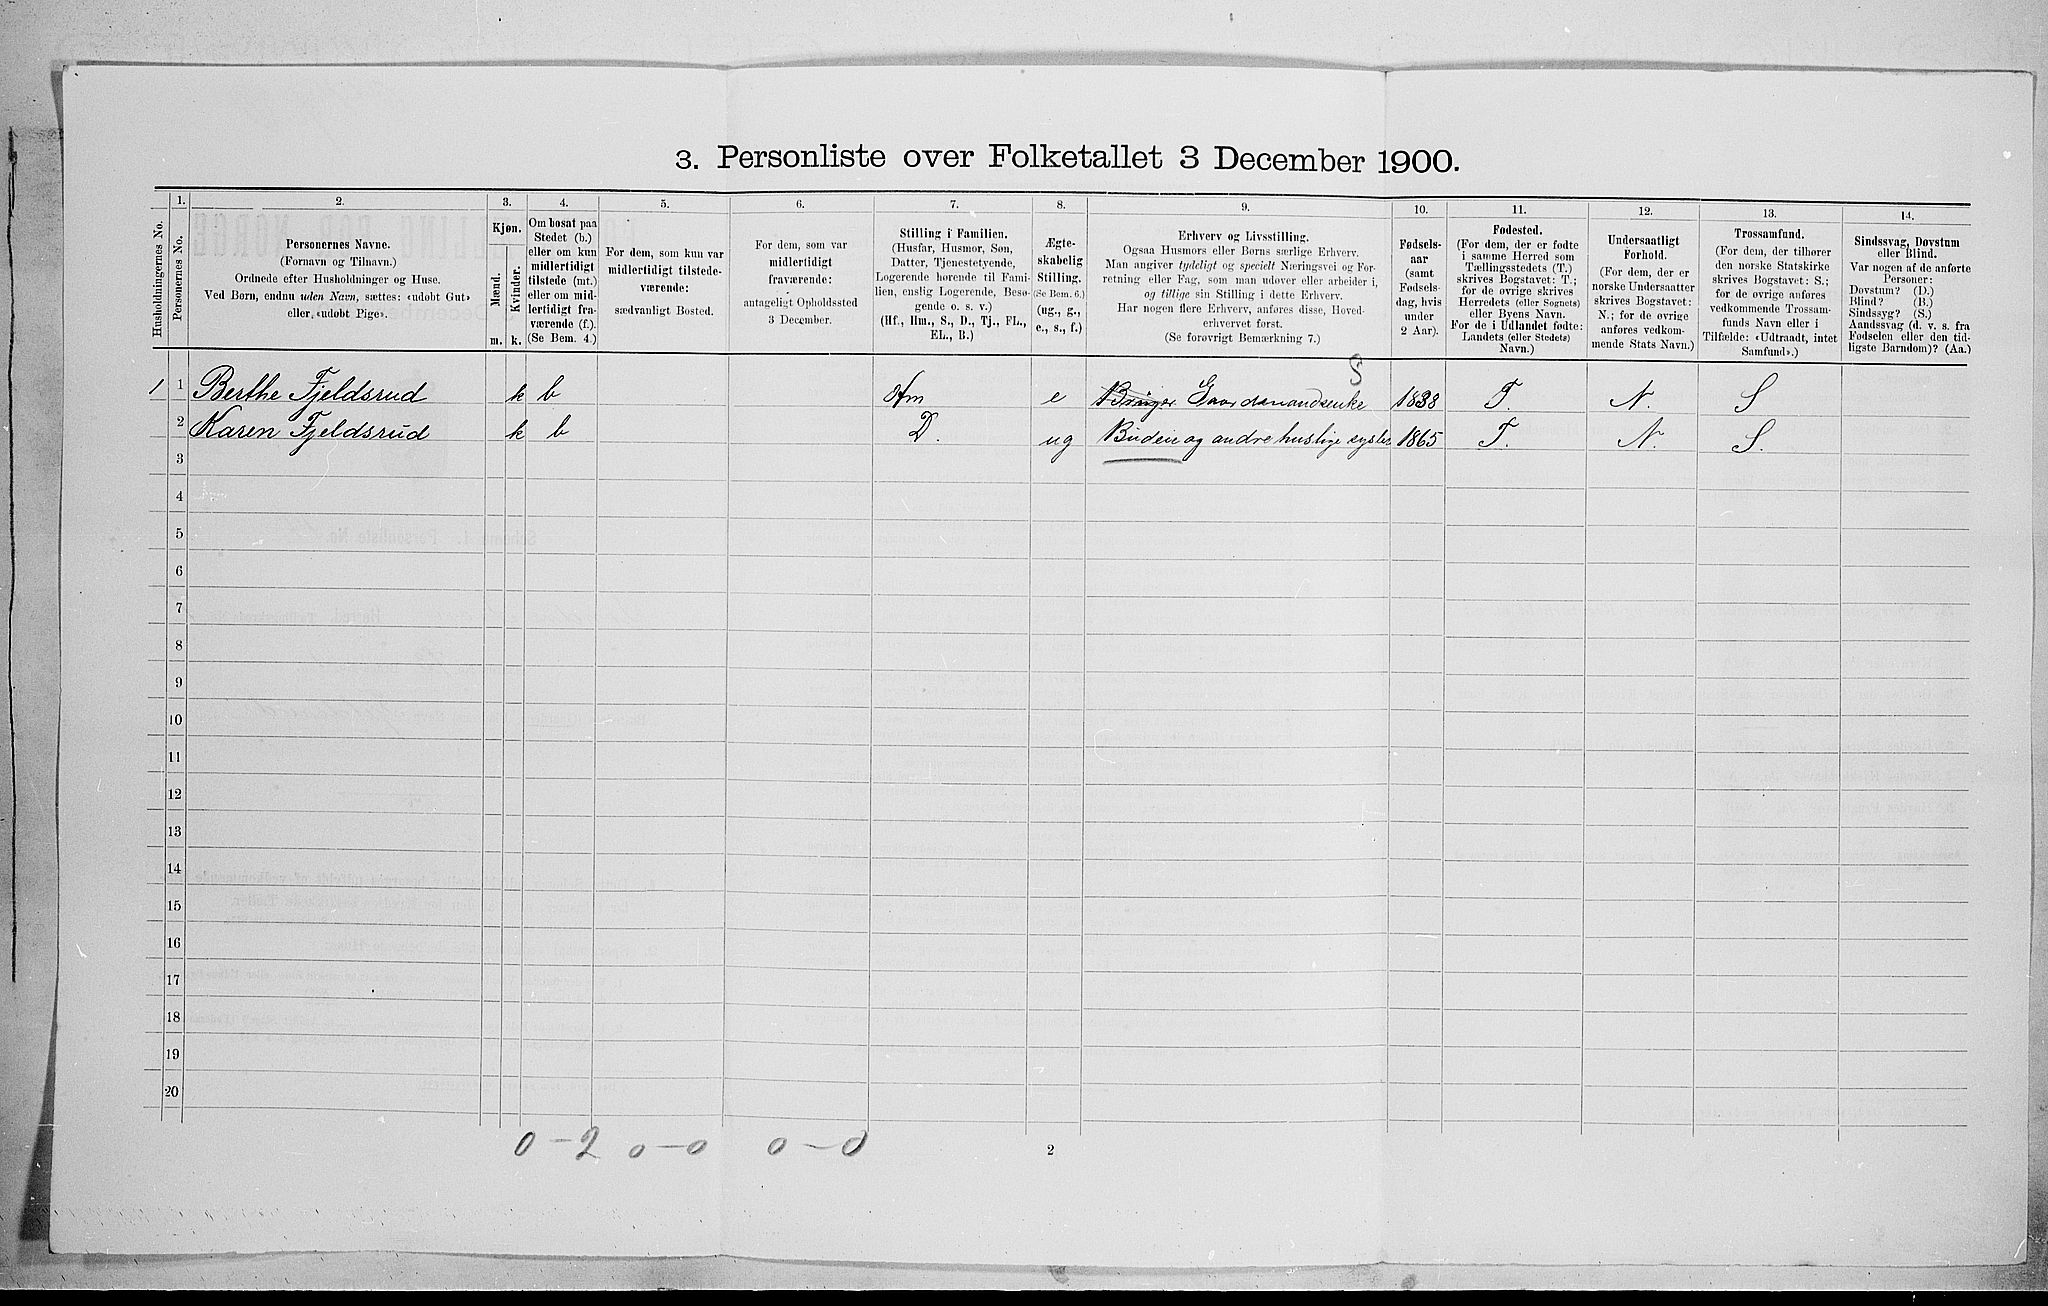 3. Personliste over Folketallet 3 December 1900.
Husholdningernes No.
1.
Personernes No.
2.
Personernes Navne.
(Fornavn og Tilnavn.)
Ordnede efter Husholdninger og Huse.
Ved Børn, endnu uden Navn, sættes: «udøbt Gut»
eller, «udøbt Pige».
3.
Kjøn.
Mænd.
Kvinder.
m. k.
4.
Om bosat paa
Stedet (b.)
eller om kun
midlertidigt
tilstede (mt.)
eller om mid-
lertidigt fra-
værende (f.).
(Se Bem. 4.)
5.
For dem, som kun var
midlertidigt tilstede-
værende:
sædvanligt Bosted.
6.
For dem, som var
midlertidigt
fraværende:
antageligt Opholdssted
3 December.
7.
Stilling i Familien.
(Husfar, Husmor, Søn,
Datter, Tjenestetyende,
Logerende hørende til Fami-
lien, enslig Logerende, Besø-
gende o. s. v.)
(Hf., Hm., S., D., Tj., FL.,
EL., B.)
8.
Ægte-
skabelig
Stilling.
(Se Bem. 6.)
(ug., g.,
e., s., f.)
9.
Erhverv og Livsstilling.
Ogsaa Husmors eller Børns særlige Erhverv.
Man angiver tydeligt og specielt Næringsvei og For-
retning eller Fag, som man udøver eller arbeider i,
og tillige sin Stilling i dette Erhverv.
Har nogen flere Erhverv, anføres disse, Hoved-
erhvervet først.
(Se forøvrigt Bemærkning 7.)
10.
Fødsels-
aar
(samt
Fødsels-
dag, hvis
under
2 Aar).
11.
Fødested.
(For dem, der er fødte
i samme Herred som
Tællingsstedets (T.)
skrives Bogstavet: T.;
for de øvrige skrives
Herredets (eller Sognets)
eller Byens Navn.
For de i Udlandet fødte:
Landets (eller Stedets)
Navn.)
12.
Undersaatligt
Forhold.
(For dem, der er
norske Undersaatter
skrives Bogstavet:
N.; for de øvrige
anføres vedkom-
mende Stats Navn.)
13.
Trossamfund.
(For dem, der tilhører
den norske Statskirke
skrives Bogstavet: S.;
for de øvrige anføres
vedkommende Trossam-
funds Navn eller i
Tilfælde: «Udtraadt, intet
Samfund».)
14.
Sindssvag, Døvstum
eller Blind.
Var nogen af de anførte
Personer:
Døvstum? (D.)
Blind? (B.)
Sindssyg? (S.)
Aandssvag (d. v. s. fra
Fødselen eller den tid-
ligste Barndom)? (Aa.)
1 1 Berthe Fjeldsrud k b Hm e Gaardmandsenke 1838 T. N. S
2 Karen Fjeldsrud k b D. ug Budeie og andre huslige sysler 1865 T. N. S.
3
4
5
6
7
8
9
10
11
12
13
14
15
16
17
18
19
20
0 – 2 0 – 0 0 – 0
2